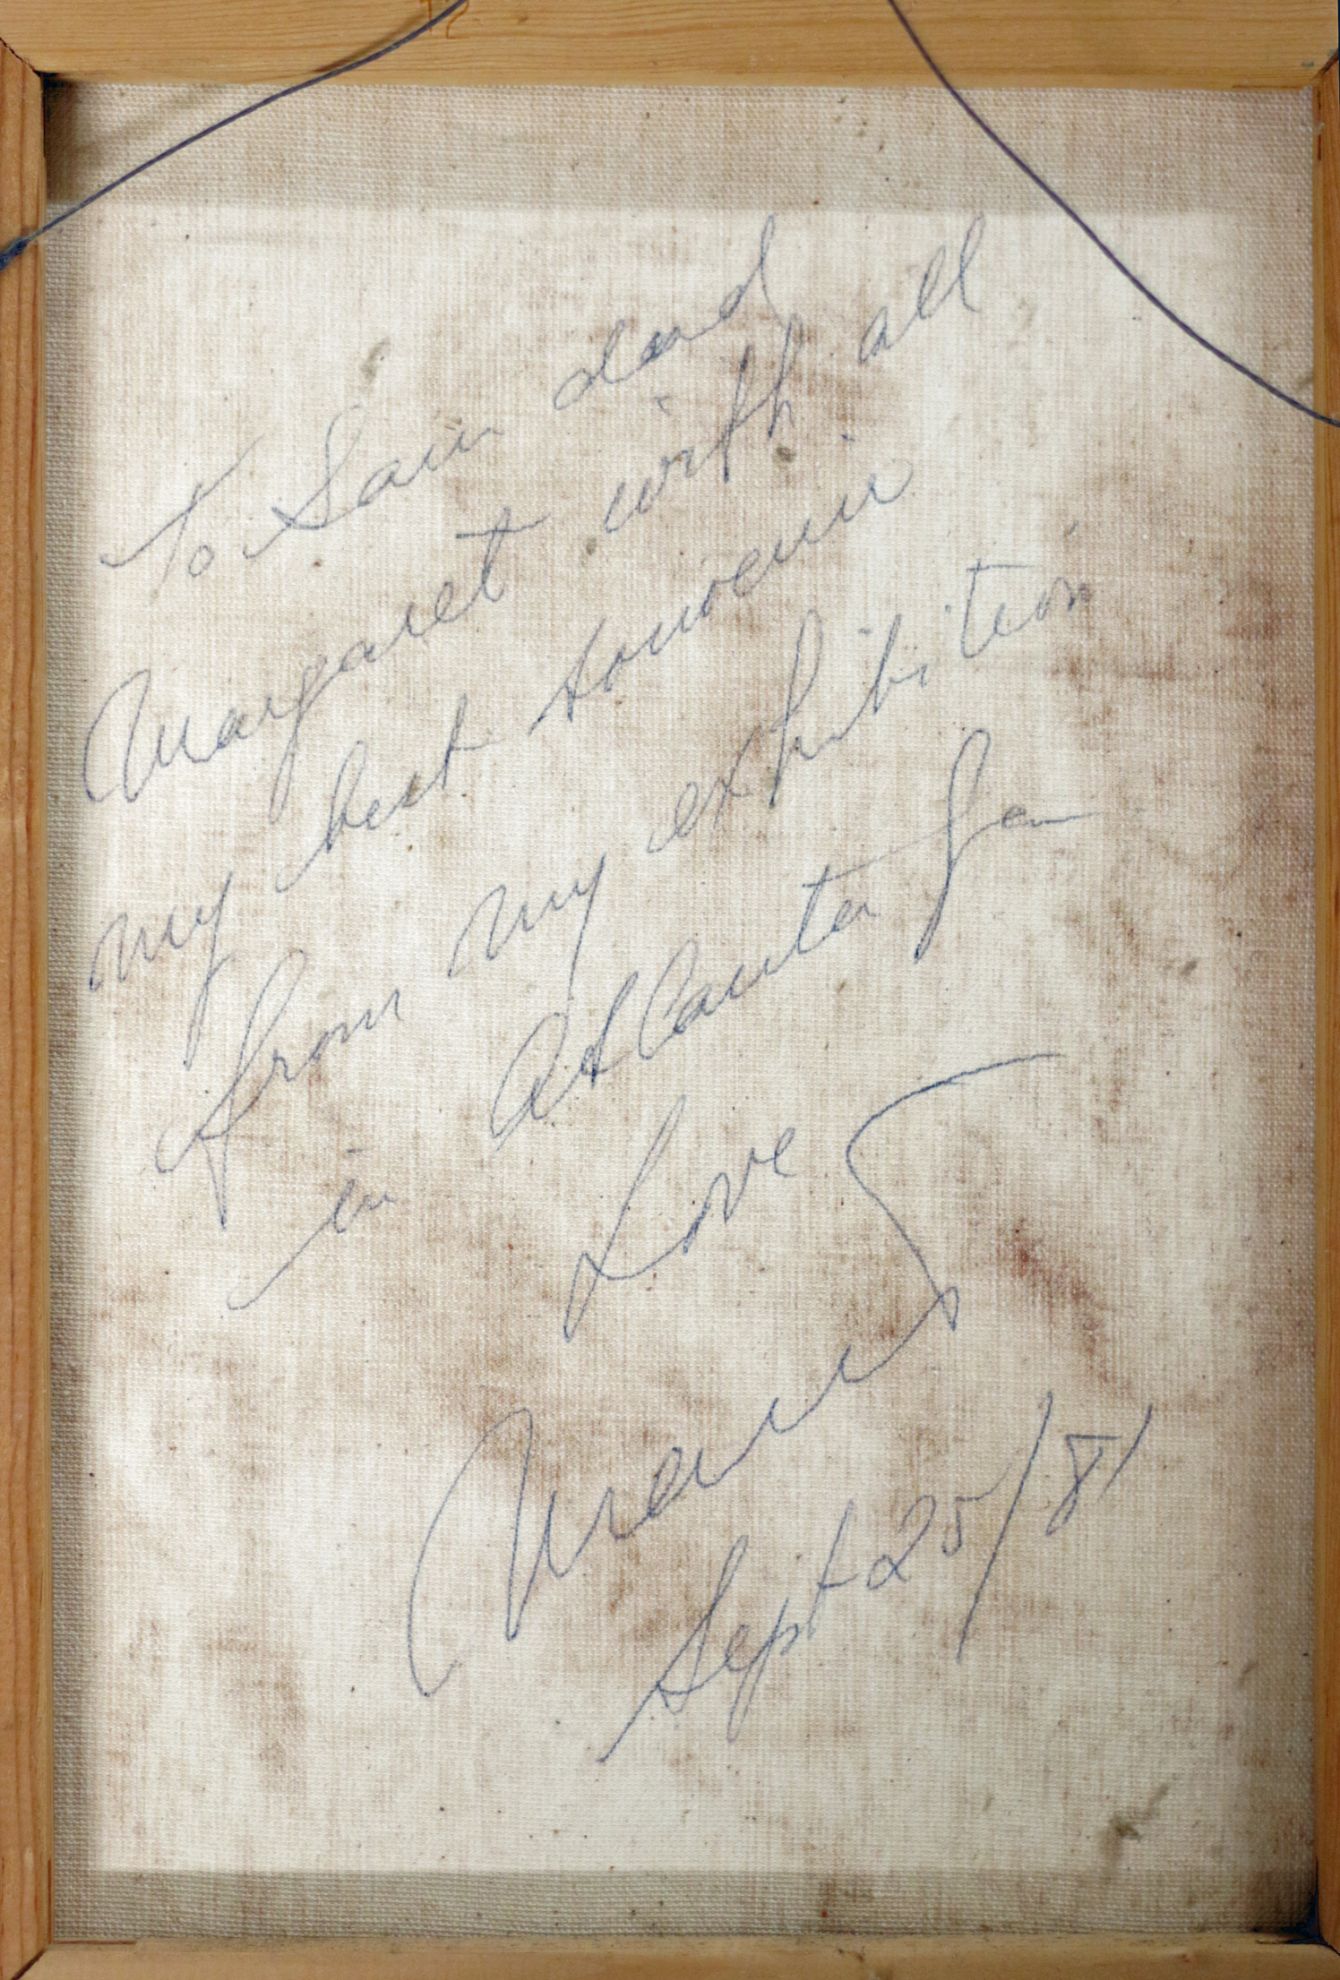 To Sam and
Margaret with all
my best souvenir
from my exhibition
in Atlanta Ga
Love
Sept 25/81